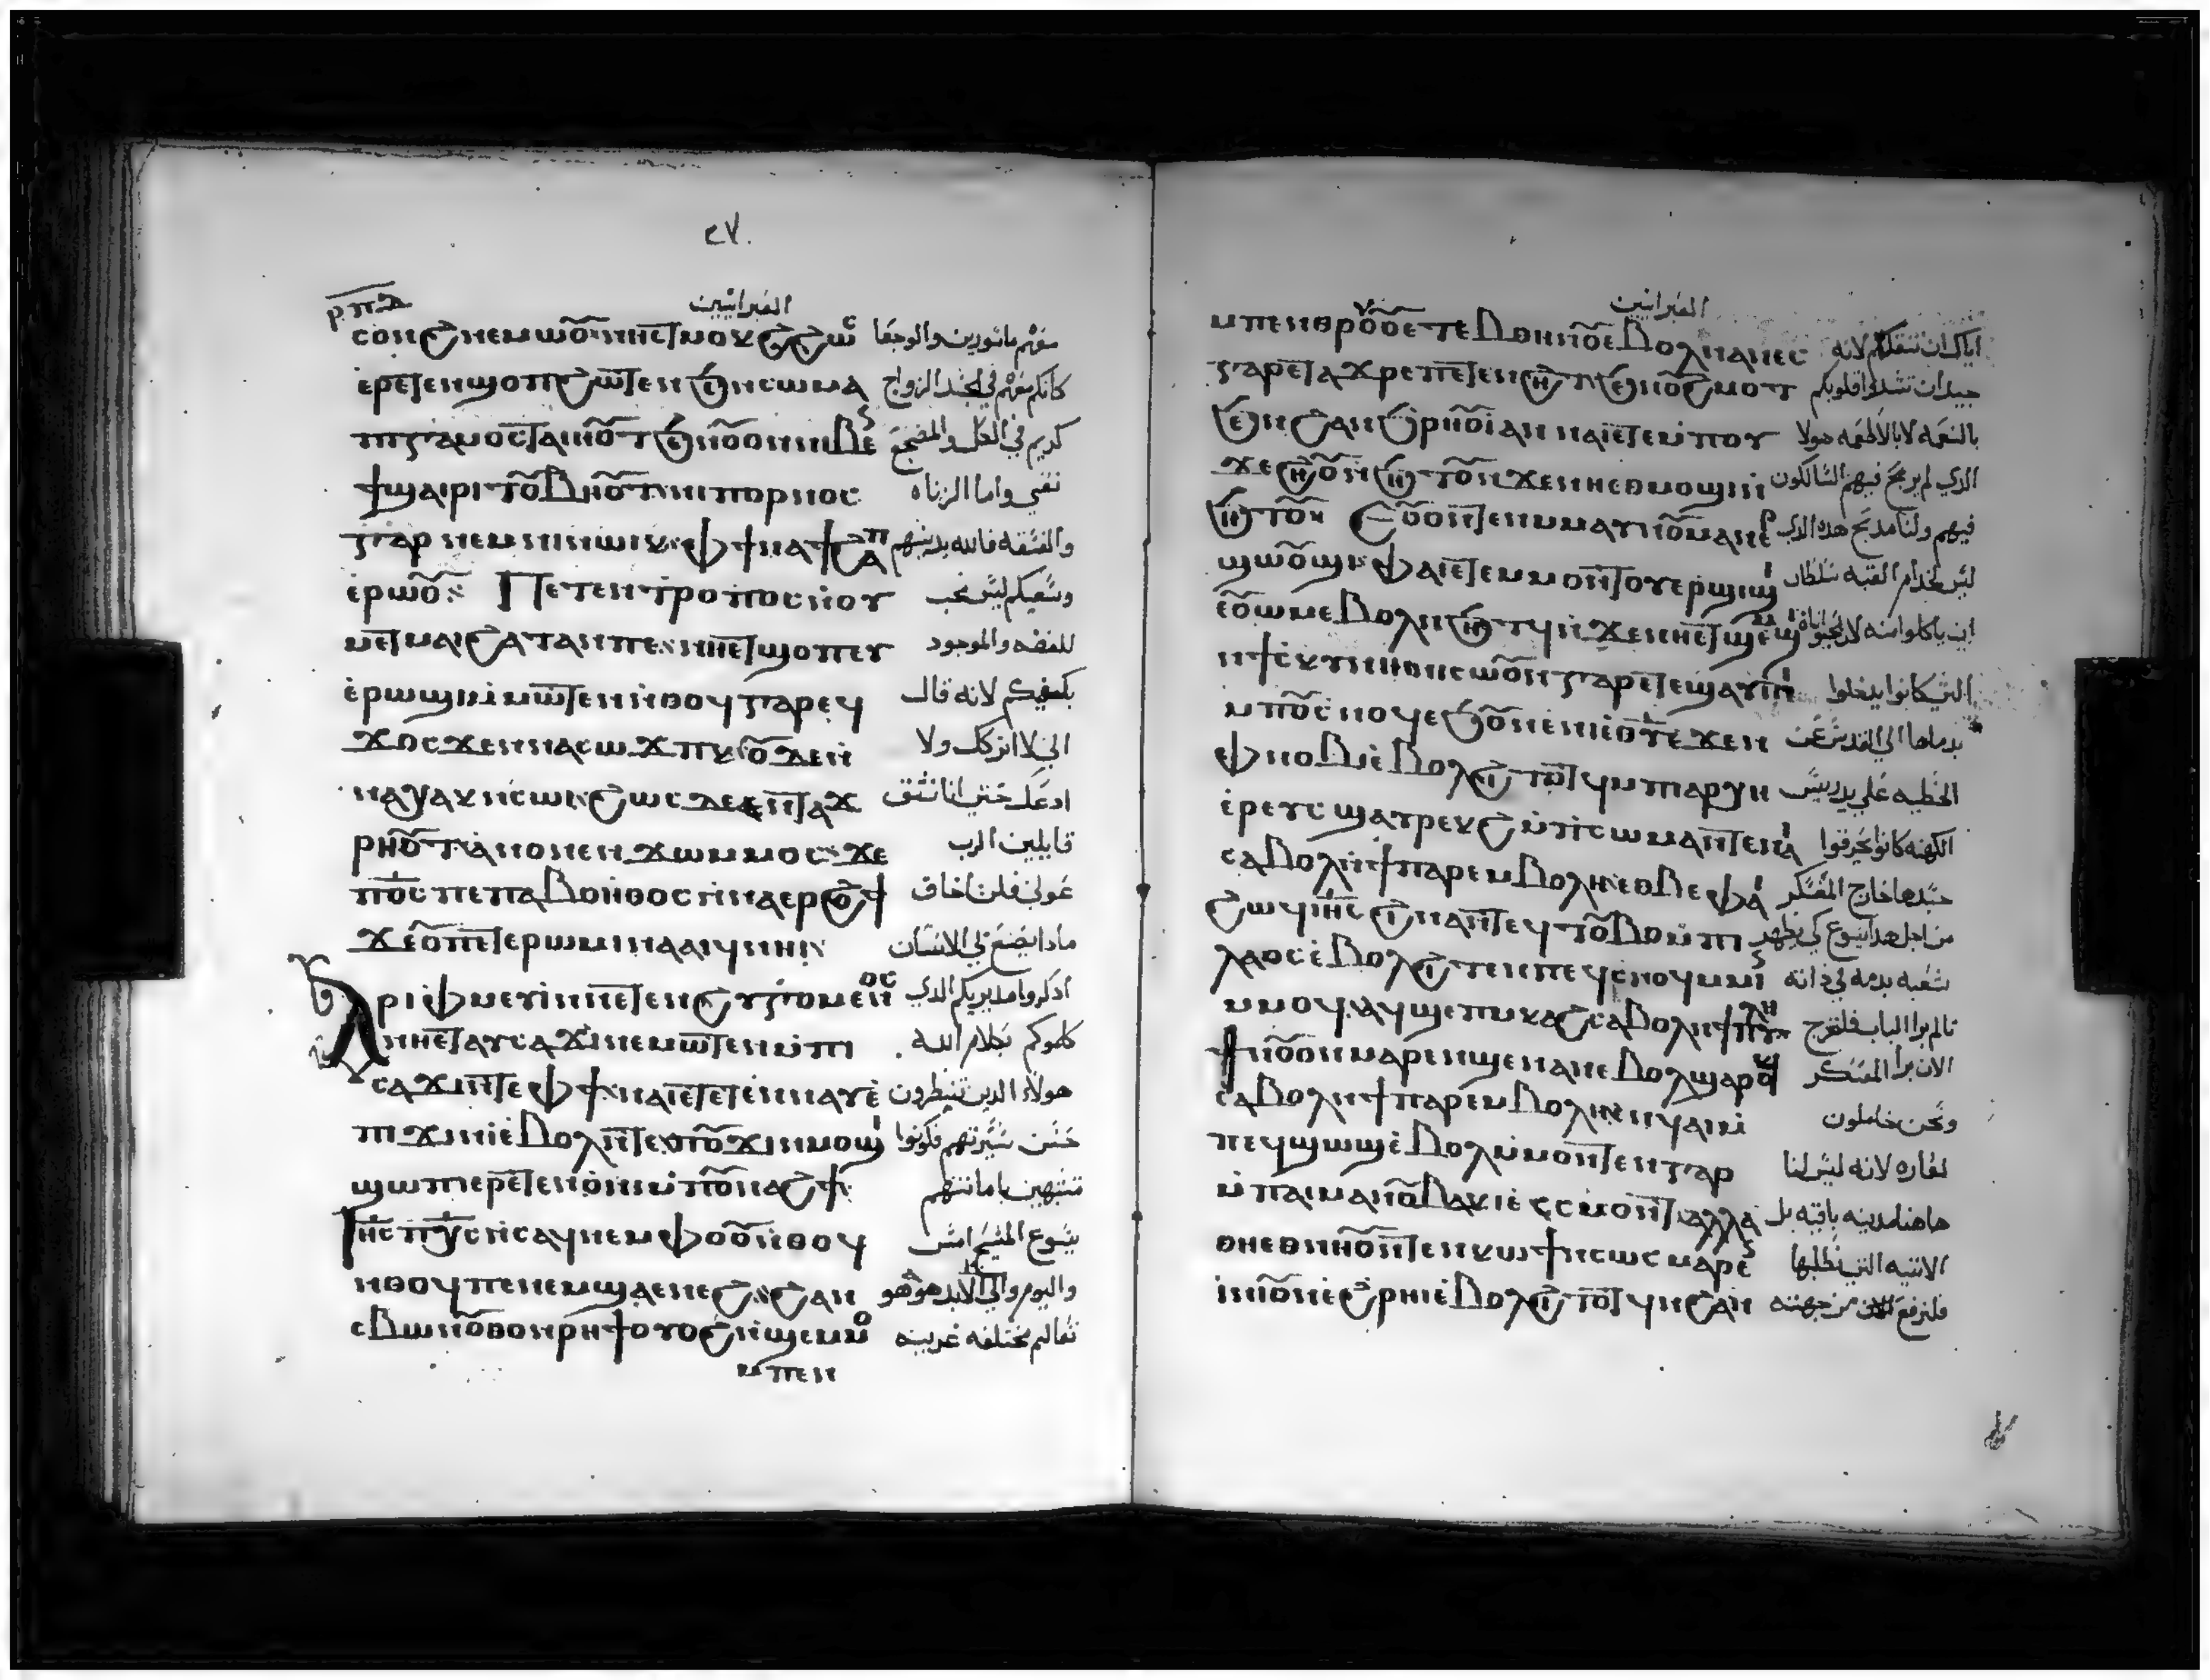 ٢٧
العبرانيين
ⲥⲟⲛϩ ⲛⲉⲙⲱⲟⲩ ⲛⲏⲉⲧⲙⲟⲕϩ ϩⲱⲥ معهم ماسورين والوجعا
ⲉⲣⲉⲧⲉⲛϣⲟⲡ ϩⲱⲧⲉⲛ ϧⲉⲛ ⲥⲱⲙⲁ كانكم معهم في الجسد الزواج
ⲡⲓⲅⲁⲙⲟⲥ ⲧⲁⲓⲏⲟⲩⲧ ϧⲉⲛ ⲟⲩⲟⲛ ⲛⲓⲃⲉⲛ كريم في الكل والمضجع
ϥϣⲁⲓⲣⲓ ⲧⲟⲩⲃⲏⲟⲩⲧ ⲛⲓⲡⲟⲣⲛⲟⲥ نقي واما الزناه
ⲅⲁⲣ ⲛⲉⲙ ⲛⲓⲛⲱⲓⲕ ⲫϯ ⲛⲁϯϩⲁⲡ والفسقه فالله يدينهم
ⲉⲣⲱⲟⲩ Ⲡⲉⲧⲉⲛⲧⲣⲟⲡⲟⲥ ⲛⲟⲩ وسعيكم ليس محب
ⲙⲉⲧⲙⲁⲓϩⲁⲧ ⲁⲛ ⲡⲉ ⲛⲏⲉⲧϣⲟⲡ ⲉⲩ للفضه والموجود
ⲉⲣⲱϣⲓ ⲙⲙⲱⲧⲉⲛ ⲛⲑⲟϥ ⲅⲁⲣ ⲉϥ يكفيكم لانه قال
ϫⲟⲥ ϫⲉ ⲛⲛⲁⲥⲱϫⲡ ⲕ ⲟⲩⲇⲉ ⲛ اني لا اتركك ولا
ⲛⲁⲭⲁⲕ ⲛⲥⲱⲓ ϩⲱⲥⲇⲉ ⲛⲧⲁϫ ادعك حتي اننا نثق
ⲣⲏⲟⲩⲧ ⲁⲛⲟⲛ ⲉⲛϫⲱ ⲙⲙⲟⲥ ϫⲉ قايلين الرب
ⲡϭⲥ ⲡⲉ ⲡⲁⲃⲟⲏⲑⲟⲥ ⲛⲛⲁⲉⲣϩⲟϯ عوني فلن اخاف
ϫⲉ ⲟⲩ ⲡⲉⲧⲉ ⲣⲱⲙⲓ ⲛⲁⲁⲓϥ ⲛⲏⲓ ماذا يصنع بي الانسان
Ⲁⲣⲓⲫⲙⲉⲩⲓ ⲛⲛⲉⲧⲉⲛϩⲩⲅⲟⲩⲙⲉⲛⲟⲥ اذكروا مدبريكم الذي
ⲛⲏⲉⲧⲁⲩⲥⲁϫⲓ ⲛⲉⲙⲱⲧⲉⲛ ⲙⲡⲓ كلموكم بكلام الله
ⲥⲁϫⲓ ⲛⲧⲉ ⲫϯ ⲛⲁⲓ ⲉⲧⲉⲧⲉⲛⲛⲁⲩ ⲉ هولاء الذين تنظرون
ⲡⲓϫⲓⲛⲓ ⲉⲃⲟⲗ ⲛⲧⲉ ⲡⲟⲩϫⲓⲛⲙⲟϣⲓ حسن سيرتهم فكونوا
ϣⲱⲡⲓ ⲉⲣⲉⲧⲉⲛⲟⲛⲓ ⲙⲡⲟⲩⲛⲁϩϯ متشبهين بامانتهم
Ⲓⲏⲥ ⲡⲭⲥ ⲛⲥⲁϥ ⲛⲉⲙ ⲫⲟⲟⲩ ⲛⲑⲟϥ يسوع المسيح امس
ⲛⲑⲟϥ ⲡⲉ ⲛⲉⲙ ϣⲁ ⲉⲛⲉϩ ϩⲁⲛ واليوم والي الابد هو هو
ⲥⲃⲱ ⲛⲟⲩⲑⲟ ⲛⲣⲏϯ ⲟⲩⲟϩ ⲛϣⲉⲙⲙⲟ تعاليم مختلفه غريبه
ⲙⲡⲉⲛ
العبرانيين
ⲙⲡⲉⲛⲑⲣⲟⲩⲟⲩⲉⲧⲉⲃ ⲑⲏⲛⲟⲩ ⲉⲃⲟⲗ ⲛⲁⲛⲉⲥ اياك ان تنقلكم لانه
ⲅⲁⲣ ⲉⲧⲁϫⲣⲉ ⲡⲉⲧⲉⲛϩⲏⲧ ϧⲉⲛ ⲟⲩϩⲙⲟⲧ جيد ان تشددوا قلوبكم
ϧⲉⲛ ϩⲁⲛϧⲣⲏⲟⲩⲓ ⲁⲛ ⲛⲁⲓ ⲉⲧⲉ ⲙⲡⲟⲩ بالنعمه لا بالاطعمه هولا
ϫⲉⲙϩⲏⲟⲩ ⲛϧⲏⲧⲟⲩ ⲛϫⲉ ⲛⲏⲉⲑⲙⲟϣⲓ الذي لم يربح فيهم السالكون
ⲛϧⲏⲧⲟⲩ Ⲟⲩⲟⲛⲧⲉⲛ ⲙⲙⲁⲩ ⲛⲟⲩⲙⲁⲛⲉⲣ فيهم ولنا مذبح هذه الذي
ϣⲱⲟⲩϣⲓ ⲫⲁⲓ ⲉⲧⲉ ⲙⲙⲟⲛⲧⲟⲩ ⲉⲣϣⲓϣⲓ ليس لخدام القبه سلطان
ⲉⲟⲩⲱⲙ ⲉⲃⲟⲗ ⲛϧⲏⲧϥ ⲛϫⲉ ⲛⲏⲉⲧϣⲉⲙϣⲓ ان ياكلوا منه لان الحيوانات
ⲛϯⲥⲕⲩⲛⲏ ⲛⲏⲑⲛⲥⲱⲟⲩⲛ ⲅⲁⲣ ⲉⲧⲉϣⲁⲩⲓⲛⲓ التي كانوا يدخلوا
ⲙⲡⲟⲩⲥⲛⲟϥ ⲉϧⲟⲩⲛ ⲉⲛⲏⲉⲑⲩ ⲉϫⲉⲛ بدماها الي القدس عن
ⲫⲛⲟⲃⲓ ⲉⲃⲟⲗ ϩⲓⲧⲟⲧϥ ⲙⲡⲓⲁⲣⲭⲏ الخطيه علي يد رييس
ⲉⲣⲉⲩⲥ ϣⲁⲩⲣⲉⲕϩ ⲡⲓⲥⲱⲙⲁ ⲛⲧⲉ ⲛⲁⲓ الكهنه كانوا يحرقوا
ⲥⲁⲃⲟⲗ ⲛϯⲡⲁⲣⲉⲙⲃⲟⲗⲏ ⲉⲑⲃⲉ ⲫⲁⲓ جسدها خارج المعسكر
ϩⲱϥ ⲓⲏⲥ ϩⲓⲛⲁ ⲛⲧⲉϥⲧⲟⲩⲃⲟ ⲙⲡⲓ من اجل هذا يسوع كي يطهر
ⲗⲁⲟⲥ ⲉⲃⲟⲗ ϩⲓⲧⲉⲛ ⲡⲉϥⲥⲛⲟϥ ⲙⲙⲓⲛ شعبه بدمه في ذاته
ⲙⲙⲟϥ ⲁϥϣⲉⲡⲙⲕⲁϩ ⲥⲁⲃⲟⲗ ⲛϯⲡⲩⲗⲏ تالم برا الباب فلنخرج
ϯⲛⲟⲩ ⲟⲩⲛ ⲙⲁⲣⲉⲛϣⲉⲛⲁⲛ ⲉⲃⲟⲗ ϣⲁⲣⲟϥ الان برا المعسكر
ⲥⲁⲃⲟⲗ ⲛϯⲡⲁⲣⲉⲙⲃⲟⲗⲏ ⲉⲛϥⲁⲓ ونحن حاملون
ⲡⲉϥϣⲱϣ ⲉⲃⲟⲗ ⲙⲙⲟⲛⲧⲉⲛ ⲅⲁⲣ لعاره لانه ليس لنا
ⲙⲡⲁⲓⲙⲁ ⲛⲟⲩⲃⲁⲕⲓ ⲉⲥⲥⲙⲟⲛⲧ ⲁⲗⲗⲁ هاهنا مدينه باقيه بل
ⲑⲏⲉⲑⲛⲏⲟⲩ ⲛⲧⲉⲛⲕⲱϯ ⲛⲥⲱⲥ ⲙⲁⲣⲉⲛ الاتيه التي نطلبها
ⲓⲛⲓ ⲟⲩⲛ ⲉϩⲣⲏⲓ ⲉⲃⲟⲗ ϩⲓⲧⲟⲧϥ ⲛϩⲁⲛ فلنرفع الان من جهته